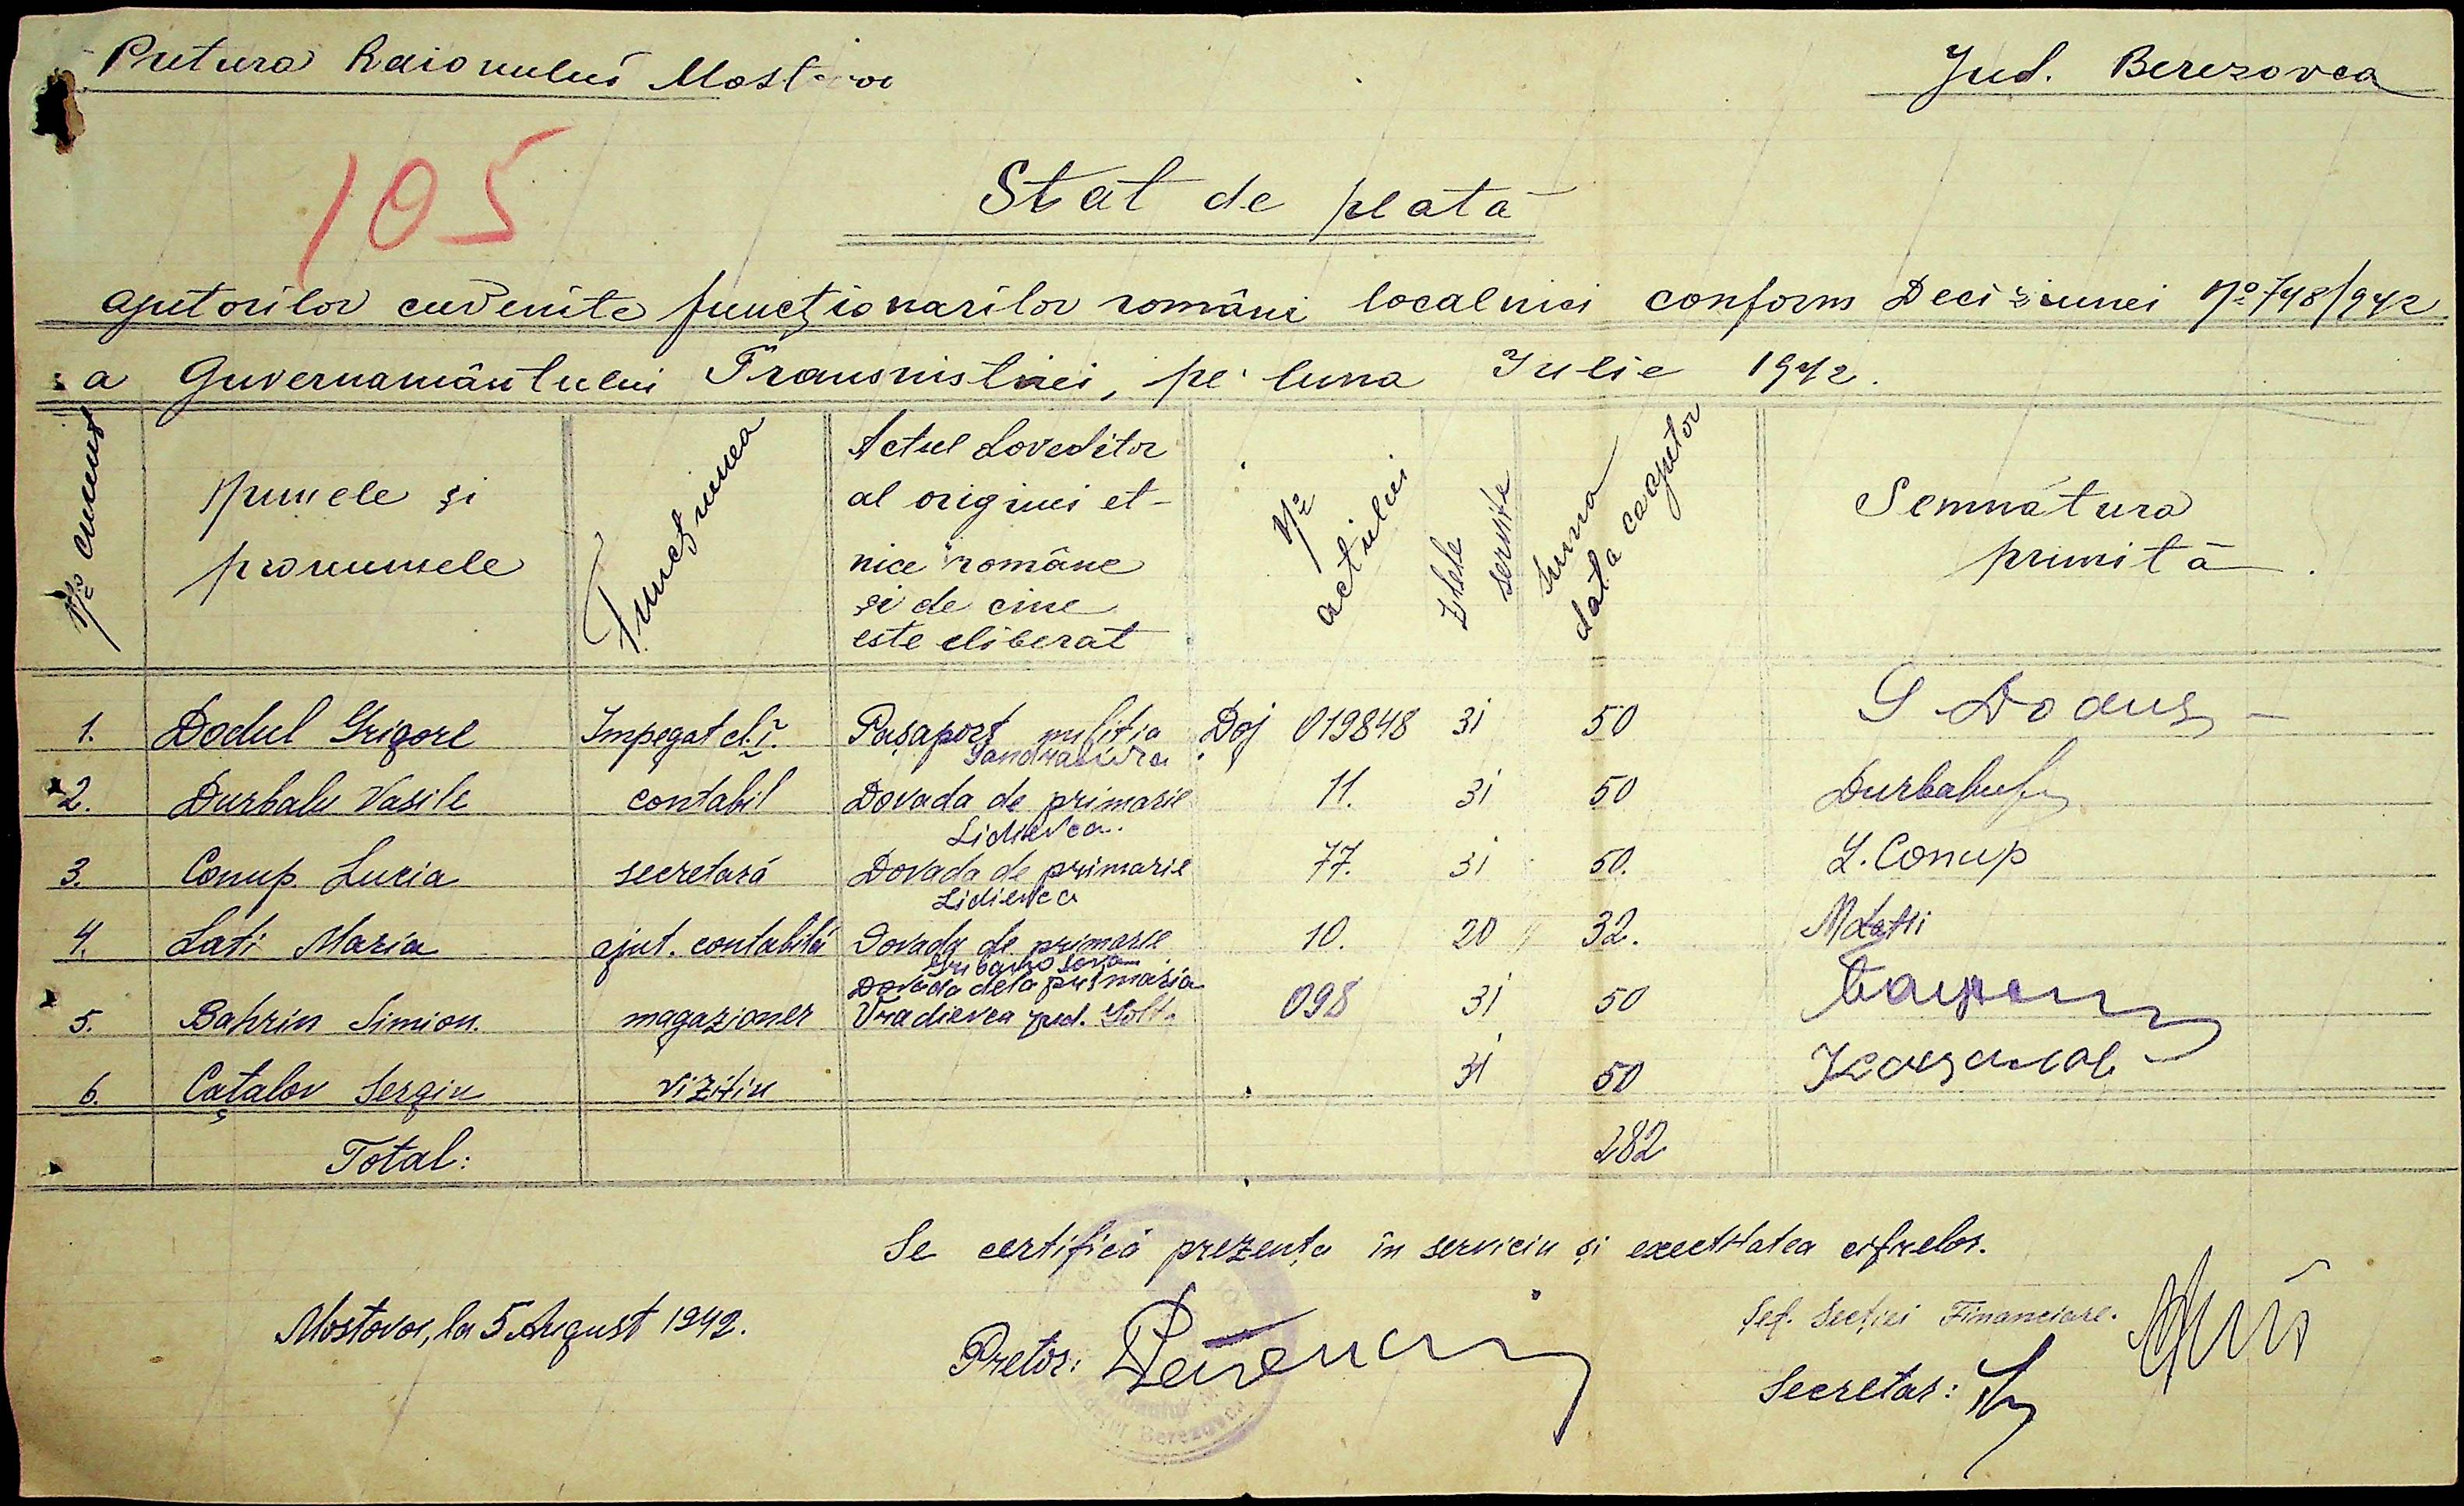 Pretura Raionului Mostovoi
Jud. Berezovca
105
Stat de plată
ajutorilor cuvenite funcționarilor români localnici conform Deciziunei No 748/942
a Guvernamântului Transnistriei, pe luna Iulie 1942.
No curent
Numele și
pronumele
Funcțiunea
Actul doveditor
al originei et-
nice române
și de cine
este eliberat
No
actului
Zilele
servite
Suma
dată ca ajutor
Semnătura
primită
1. Dodul Grigore Impegat cl. I. Pașaport miliția Doj 019848 31 50 G Doduz
2. Durbalu Vasile contabil Dovada de primarie 11. 31 50 Durbaluf
Lidievca.
3. Conup Lucia secretară Dovada de primarie 77. 31 50. L. Conup
Lidievca
4. Lati Maria ajut. contabilă Dovada de primarie 10. 20 32. M Latti
Dovada dela primaria
5. Bahrin Simion. magazioner Vradievca jud. Golt. 098 31 50
6. Cațalov Sergiu vizitiu 31 50
Total: 282
Se certifică prezența în serviciu și exectitatea cifrelor.
Mostovoi, la 5 August 1942.
Pretor:
Șef. Secției Financiare.
Secretar:
Berezovca